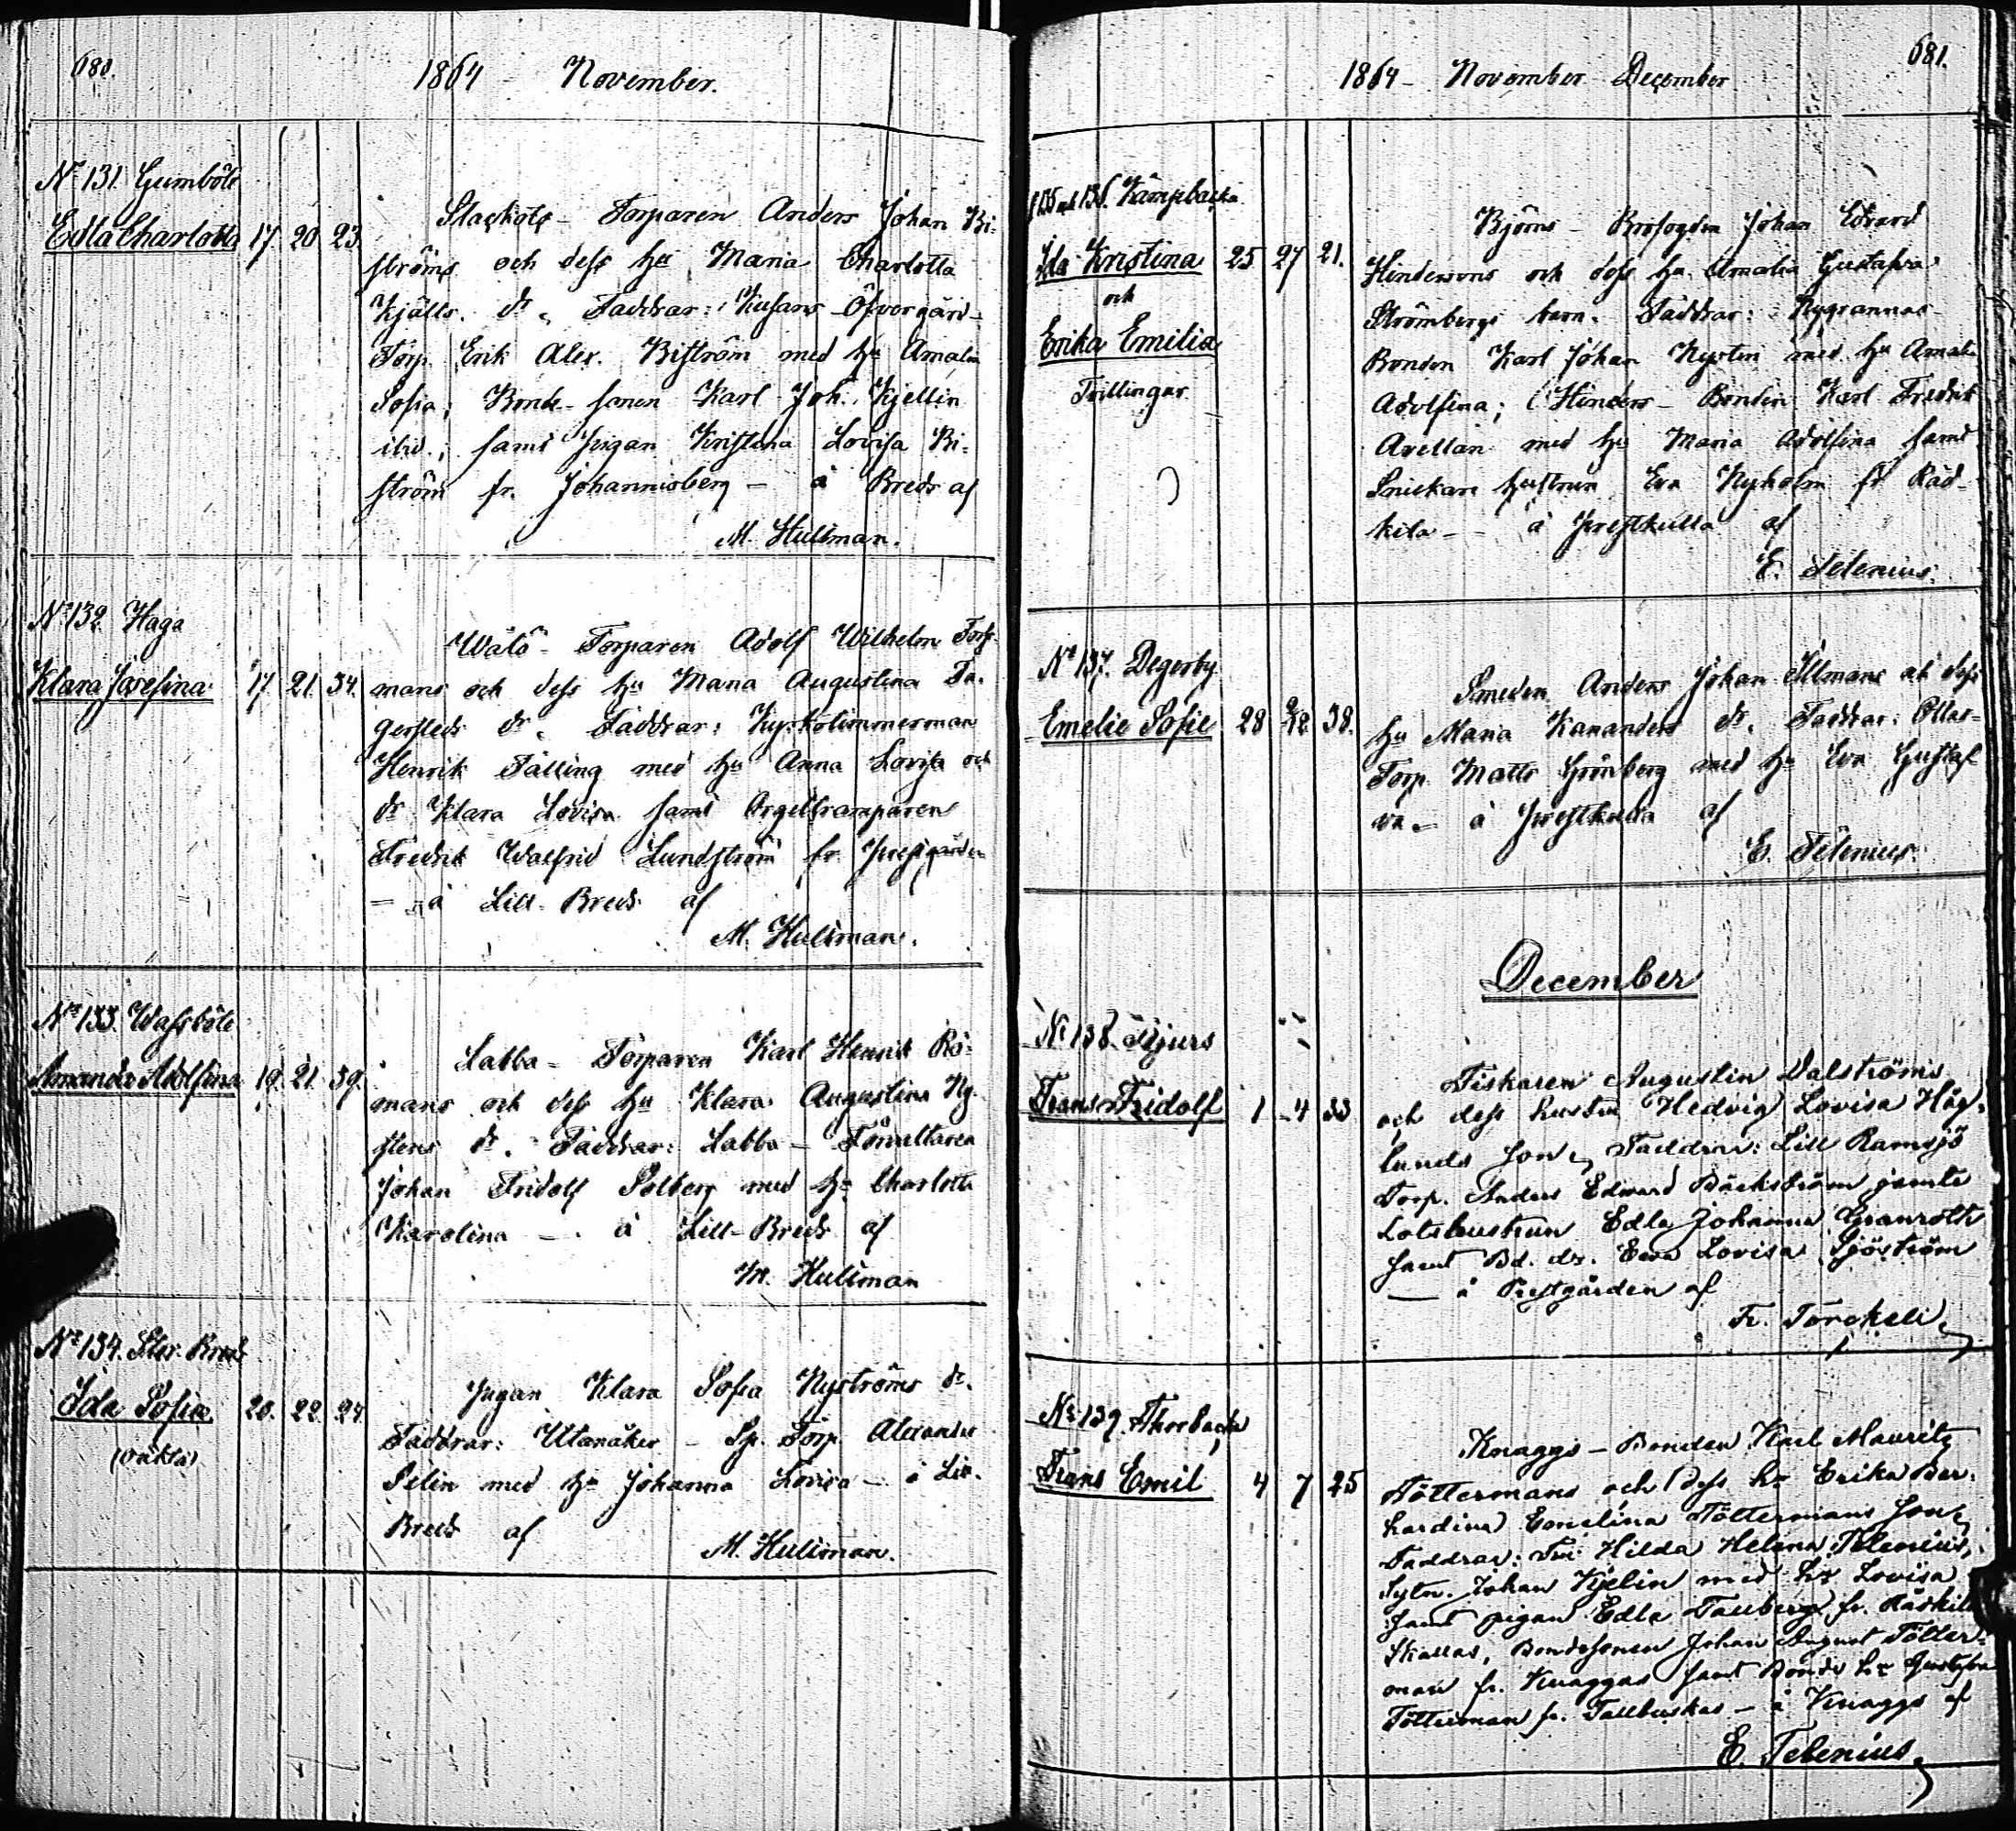 680.
1864 November.
No 131 Gumböle
Edla Charlotta 17. 20. 23.
Torparen Anders Johan Bi-
ströms och dess hu Maria Charlotta
Kjälls dr. Faddrar: Öfvergård-
Torp. Erik Alex. Biström med hu Amalia
Sofia; Bonde-sonen Karl Joh. Kjellin
ibid.; samt pigan Kristina Lovisa Bi-
ström fr. Johannisberg - å Breds af
M. Hultman.
No 132. Haga
Klara Josefina 17. 21. 34.
Torparen Adolf Wilhelm Fors-
mans och dess hu Maria Augustina Fa-
gerstedts dr. Faddrar: Kyrkotimmerman
Henrik Fälling med hu Anna Lovisa och
dr Klara Lovisa samt Orgeltramparen
Fredrik Walfrid Lundström fr. Prestgården
- å Lill-Breds af
M. Hultman.
No 133. Wassböle
Amanda Adolfina 19. 21. 39.
Labba - Torparen Karl Henrik Rö-
mans och dess hu Klara Augustina Ny-
stens dr. Faddrar: Labba - Förvaltaren
Johan Fridolf Solberg med hu Charlotta
Karolina - å Lill-Breds af
M. Hultman
No 134. Stor Breds
Ida Sofia 20. 22. 24.
(oäkta)
Pigan Klara Sofia Nyströms dr.
Faddrar: Utanåker - Torp. Alexander
Selin med hu Johanna Lovisa - å Lill-
Breds af
M. Hultman.
681.
1864 - November December
135 och 136. Kämpbacka
Ida Kristina 25 27 21.
och
Erika Emilia
Tvillingar
Björns - Brofogden Johan Edvard
Hindersons och dess hu Amalia Gustafva
Strömbergs barn. Faddrar: Nygrannas
Bonden Karl Johan Nysten med hu Amalia
Adolfina; Hinders - Bonden Karl Fredrik
Avellan med hu Maria Adolfina samt
Snickare hustrun Eva Nyholm fr Räd-
kila - å Prestkulla af
E. Telenius.
No 137. Degerby
Emelie Sofie 28 38.
Smeden Anders Johan Illmans och dess
hu Maria Kananders dr. Faddrar: Ollas-
Torp. Matts Grönberg med hu Eva Gustaf-
va - å Prestkulla af
E. Telenius.
December
No 138. Bjurs
Frans Fridolf 1 4 33
Fiskaren Augustin Dalströms
och dess hustru Hedvig Lovisa Hög-
lunds son, Faddrar: Lill Ramsjö
Torp. Anders Edward Bäckström jämte
Lotshustrun Edla Johanna Granroth
samt Bd. dr. Ewa Lovisa Sjöström
- å Prestgården af
Fr. Törckell
No 139. Thorbacka
Frans Emil 4 7 25
Knaggs - Bonden Karl Mauritz
Töttermans och dess hu Erika Ber-
hardina Emelina Töttermans son,
Faddrar: Hilda Helena Telenius,
Sytn. Johan Kjelin med hu Lovisa
samt pigan Edla Tallberg fr. Räckila
Skallas, Bondesonen Johan August Tötter-
man fr. Knaggas samt Bonde hu Gustafva
Tötterman fr. Tallbuskas - å Knaggs af
E. Telenius